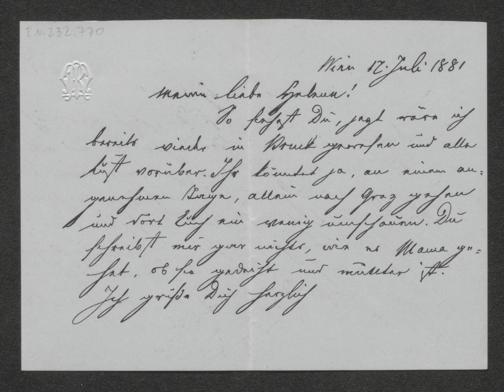 I.N. 232.770
Wien 17. Juli 1881
Meine liebe Helene!
So siehst Du, jetzt wäre ich
bereits wieder in Bruck gewesen und alle
Lust vorüber. Ihr könntet ja, an einem an=
genehmen Tage, allein nach Graz gehen
und dort Euch ein wenig umschauen. Du
schreibst mir gar nichts, wie es Mama ge=
het, ob sie gedeiht und munter ist.
Ich grüße Dich herzlich